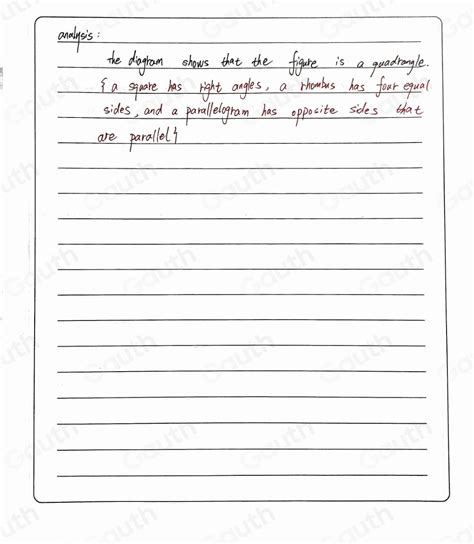 analysis:
the diagram shows that the figure is a quadrangle.
{a square has right angles, a rhombus has four equal
sides, and a parallelogram has opposite sides that
are parallel}
Gauth